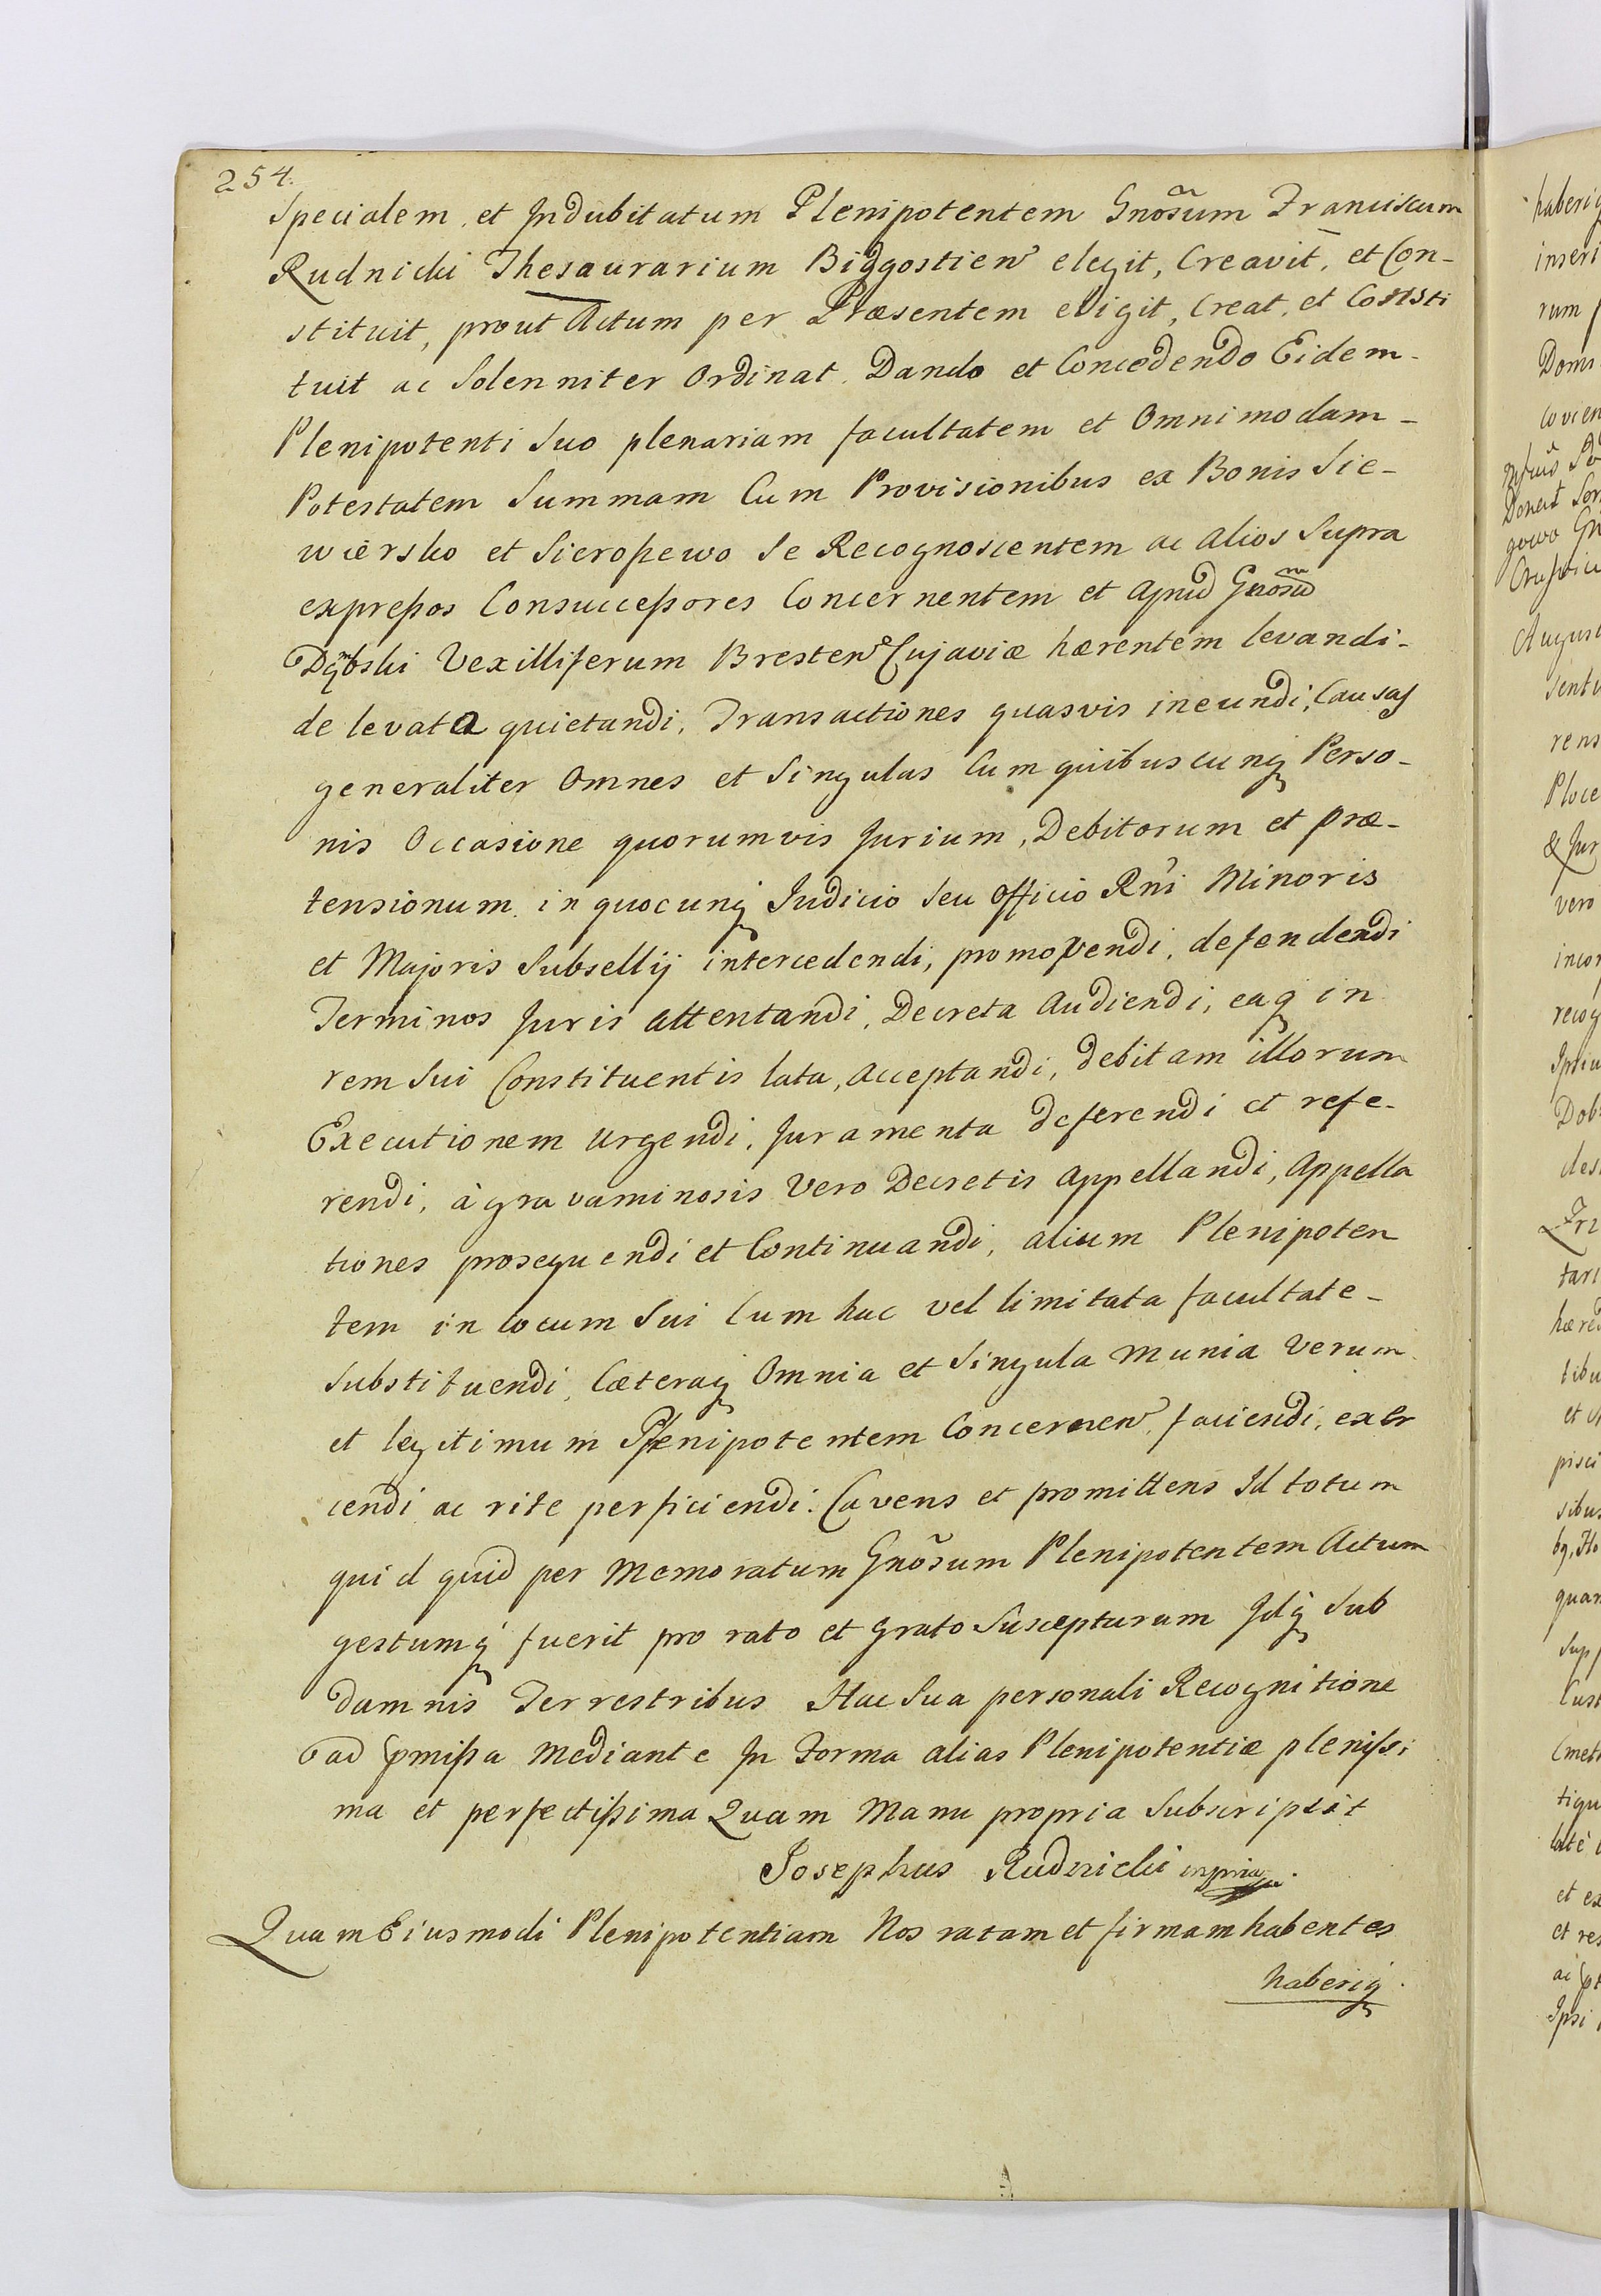 254.
Specialem et Indubitatum Plenipotentem Gnõsum Franciscum
Rudnicki Thesaurarium Bidgostien elegit, Creavit, et Con-
stituit, prout Actum per Præsentem eligit, Creat, et Consti
tuit ac Solenniter Ordinat. Dando et Concedendo Eidem-
Plenipotenti Suo plenariam facultatem et Omnimodam-
Potestatem Summam Cum Provisionibus ex Bonis Sie-
wiersko et Sieroszewo Se Recognoscentem ac alios Supra
expressos Consuccessores Concernentem et apud Gnosum
Dąmbski Vexilliferum Bresten Cujaviæ hærentem levandi-
de levata quietandi, Transactiones quasvis ineundi, Causas
generaliter Omnes et Singulas Cum quibuscunq Perso-
nis Occasione quorumvis Jurium, Debitorum et Præ-
tensionum in quocunq Judicio Seu Officio Rni Minoris
et Majoris Subsellij intercedendi, promovendi, defendendi
Terminos Juris attentandi, Decreta Audiendi, eaq in
rem Sui Constituentis lata, acceptandi, debitam illorum
Executionem urgendi, Juramenta deferendi et refe-
rendi, à gravaminosis Vero Decretis Appellandi, Appella
tiones prosequendi et Continuandi, alium Plenipoten
tem in locum Sui Cum hac vel limitata facultate-
Substituendi, Cæteraq Omnia et Singula Munia Verum
et legitimum Plenipotentem Concernen faciendi, exer
cendi ac rite perficiendi. Cavens et promittens Id totum
quid quid per Memoratum Gnõsum Plenipotentem Actum
gestumq fuerit pro rato et grato Suscepturum Idq Sub
damnis Terrestribus Hac Sua personali Recognitione
ad pmissa Mediante In Forma alias Plenipotentiæ plenissi
ma et perfectissima Quam Manu propria Subscripsit
Josephus Rudnicki mpria.
Quam Eiusmodi Plenipotentiam Nos ratam et firmam habentes
haberiq